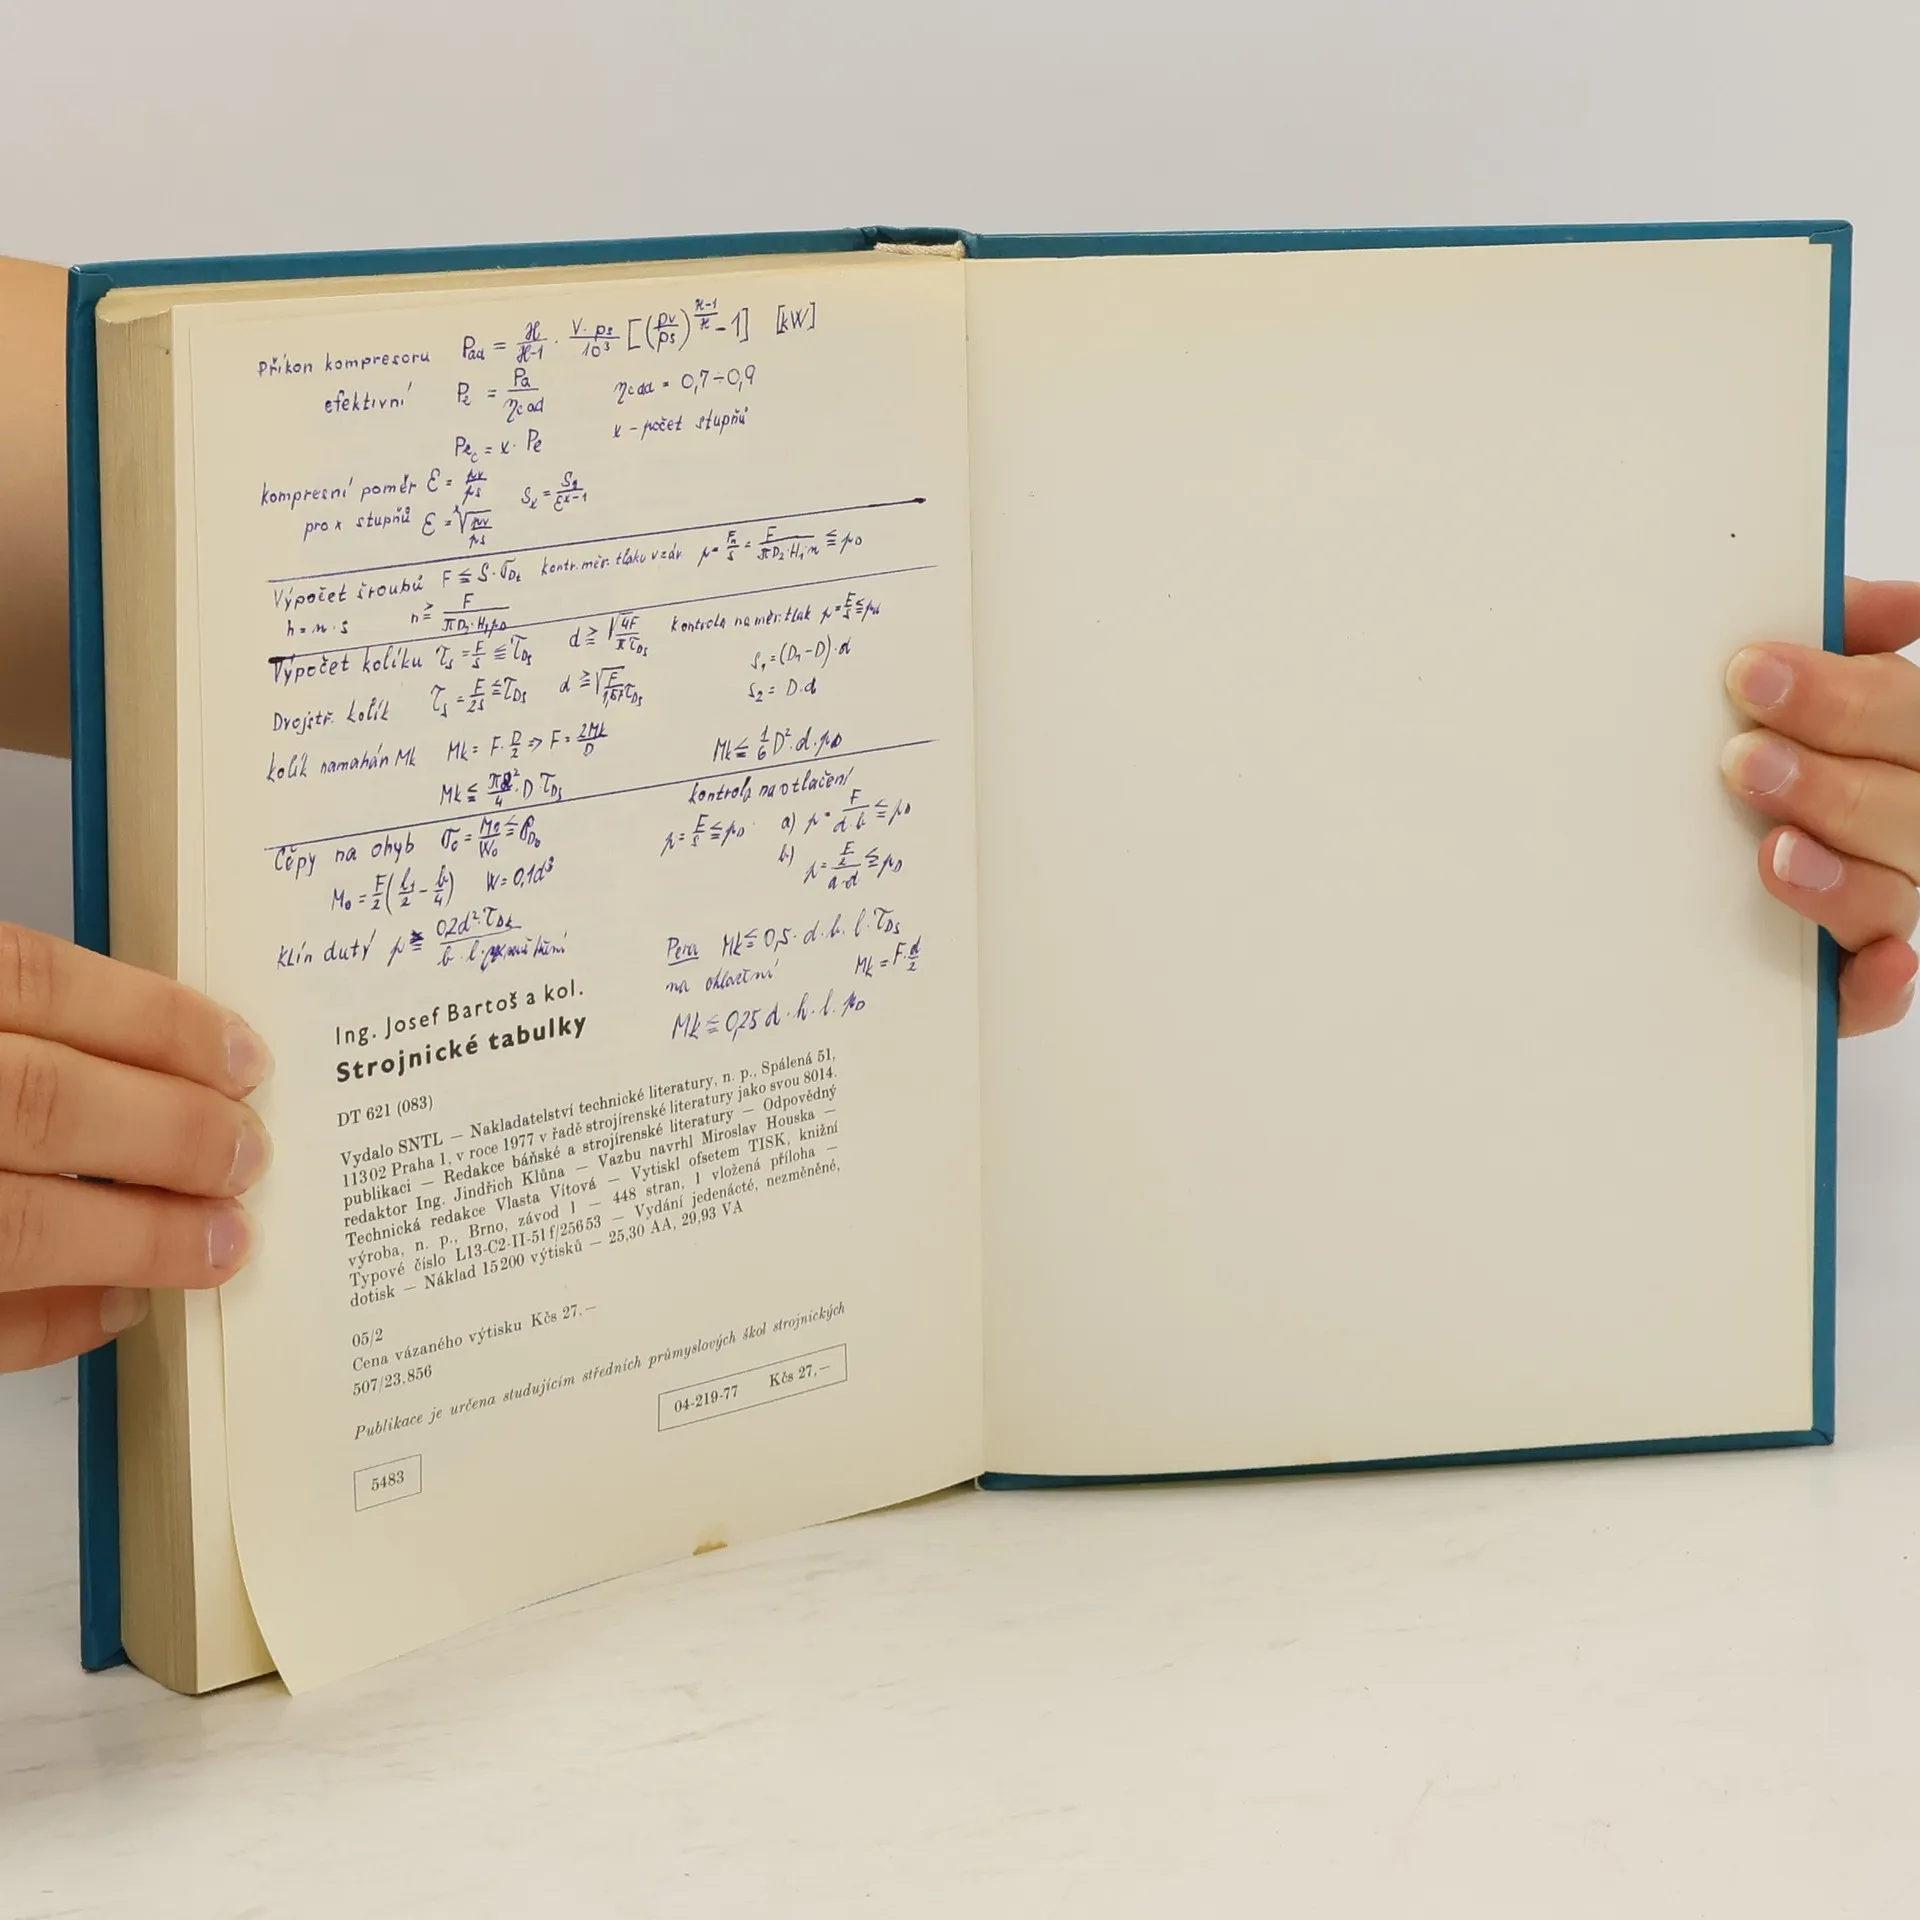 Příkon kompresoru Pad = ϰ/ϰ-1 · V·ps/10³ [(pv/ps)^(ϰ-1/ϰ) -1] [kW]
efektivní Pe = Pa/ηcad ηcad = 0,7÷0,9
Pec = x · Pe x - počet stupňů
kompresní poměr ε = pv/ps Sx = S1/ε^(x-1)
pro x stupňů ε = ˣ√(pv/ps)
Výpočet šroubů F ≦ S·σDt kontr. měr. tlaku v záv. p = Fn/S = F/(πD2·H1·n) ≦ pD
h = n·s n ≧ F/(πD2·H1pD)
Výpočet kolíku τs = F/S ≦ τDs d ≧ √(4F/πτDs) kontrola na měr. tlak p = F/S ≦ pd
S1 = (D1-D)·d
Dvojstř. kolík τs = F/2S ≦ τDs d ≧ √(F/1,57τDs) S2 = D.d
kolík namahán Mk Mk = F·D/2 ⇒ F = 2Mk/D Mk ≦ 1/6 D²·d·pD
Mk ≦ πd²/4 · D τDs
Čepy na ohyb σo = Mo/Wo ≦ σDo kontrola na otlačení
p = F/S ≦ pD a) p = F/(d·b) ≦ pD
Mo = F/2 (l1/2 - b/4) W = 0,1d³ b) p = (F/2)/(a·d) ≦ pD
Klín dutý p ≧ 0,2d²·τDk/(b·l)
Pera Mk ≦ 0,5·d·b.l.τDs
na otlačení Mk = F·d/2
Mk ≦ 0,25 d·h·l·pD
Ing. Josef Bartoš a kol.
Strojnické tabulky
DT 621 (083)
Vydalo SNTL — Nakladatelství technické literatury, n. p., Spálená 51,
113 02 Praha 1, v roce 1977 v řadě strojírenské literatury jako svou 8014.
publikaci — Redakce báňské a strojírenské literatury — Odpovědný
redaktor Ing. Jindřich Klůna — Vazbu navrhl Miroslav Houska —
Technická redakce Vlasta Vítová — Vytiskl ofsetem TISK, knižní
výroba, n. p., Brno, závod 1 — 448 stran, 1 vložená příloha —
Typové číslo L13-C2-II-51f/25653 — Vydání jedenácté, nezměněné,
dotisk — Náklad 15200 výtisků — 25,30 AA, 29,93 VA
05/2
Cena vázaného výtisku Kčs 27.—
507/23.856
Publikace je určena studujícím středních průmyslových škol strojnických
04-219-77 Kčs 27,—
5483